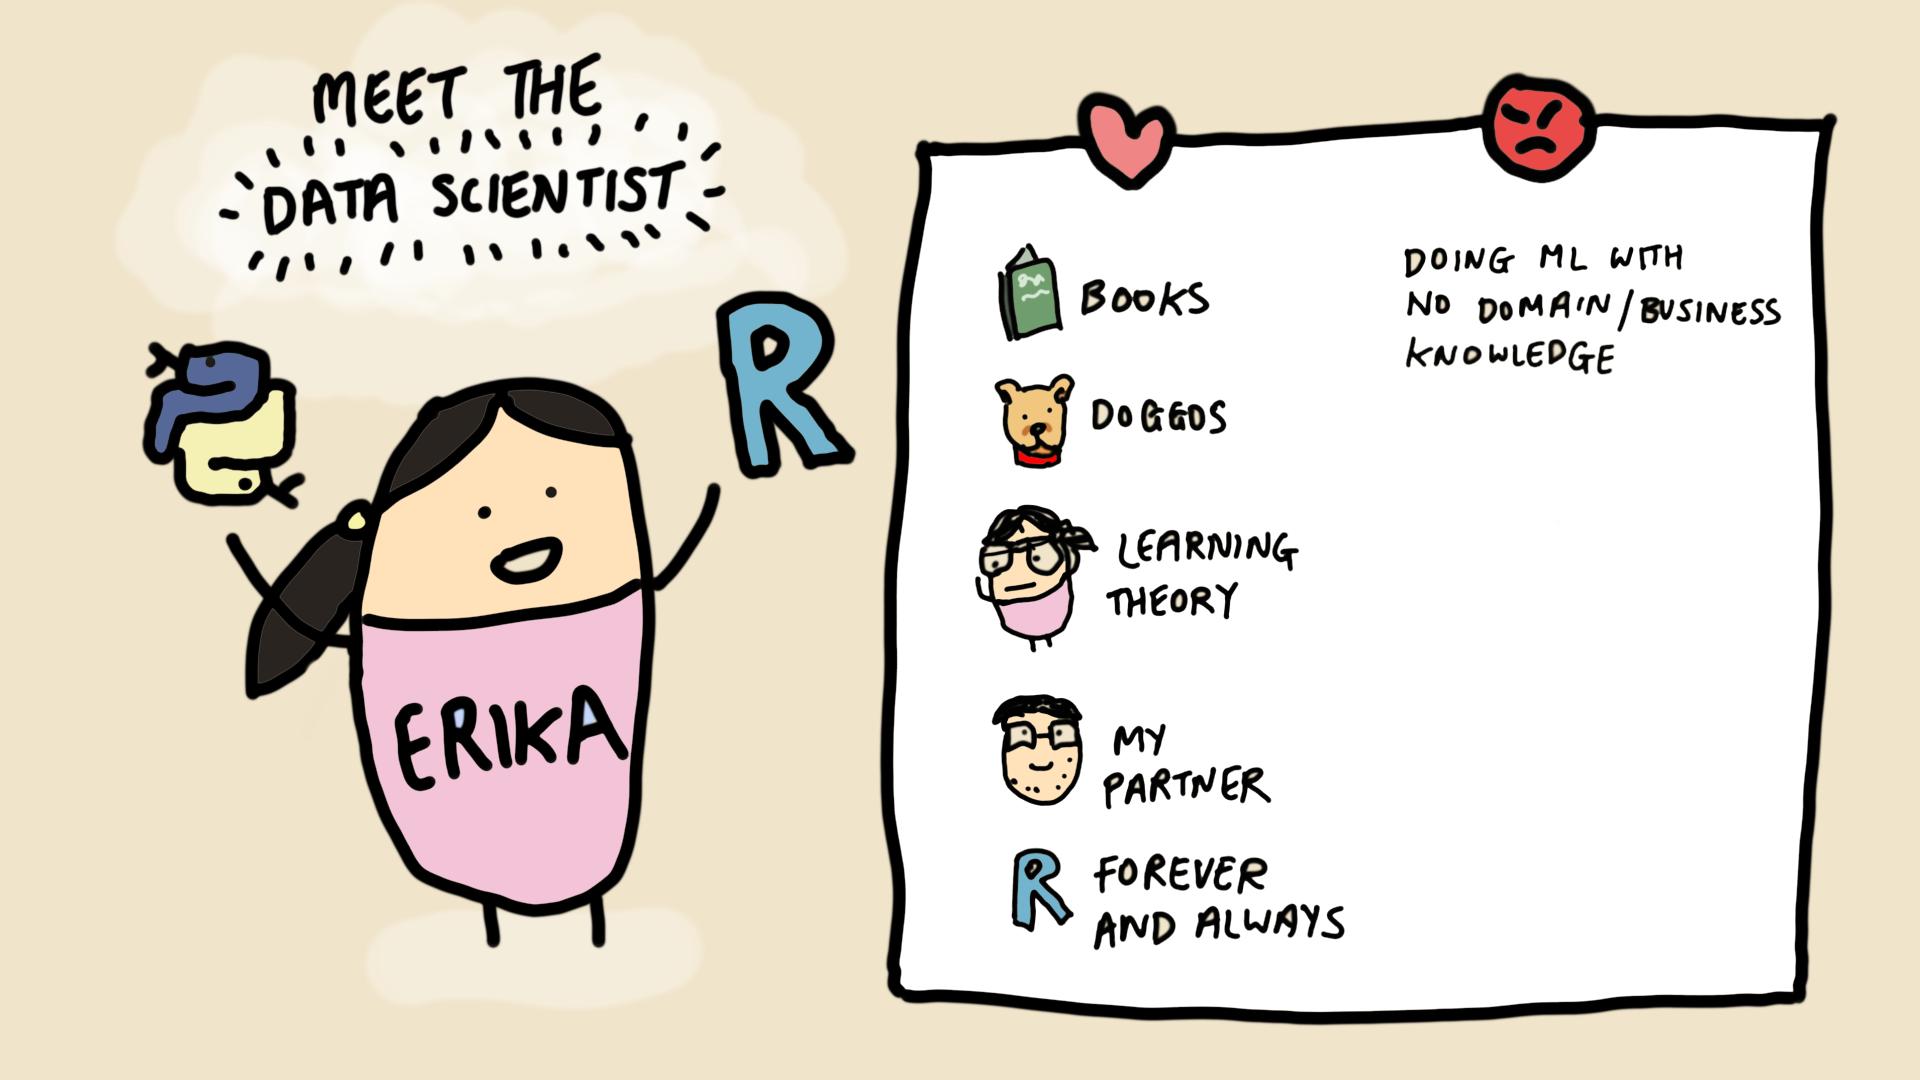 MEET THE
DATA SCIENTIST
R
ERIKA
BOOKS
DOGGOS
LEARNING
THEORY
MY
PARTNER
R FOREVER
AND ALWAYS
DOING ML WITH
NO DOMAIN/BUSINESS
KNOWLEDGE